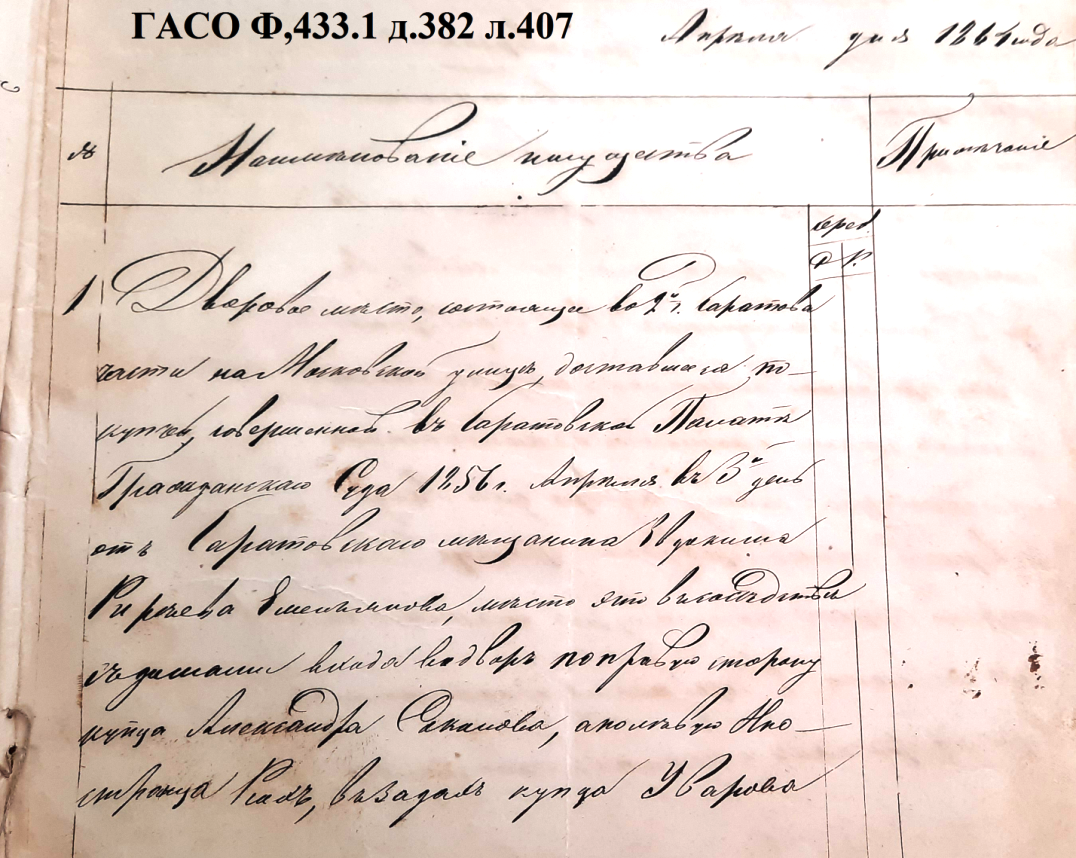 ГАСО Ф,433.1 д.382 л.407
Апреля дня 1864 года
№ Наименованіе имущества Примѣчаніе
сереб.
Р. К.
1 Дворовое мѣсто, состоящее во 2й г. Саратова
части на Московской улицѣ, доставшееся по
купчей, совершенной въ Саратовской Палатѣ
Гражданскаго Суда 1856 г. Апрѣля въ 3й день
отъ Саратовскаго мѣщанина
Емельянова, мѣсто это въ сосѣдствѣ
съ домами входа въ дворъ по правую сторону
купца Александра а по лѣвую Ино
странца въ задахъ купца Уварова